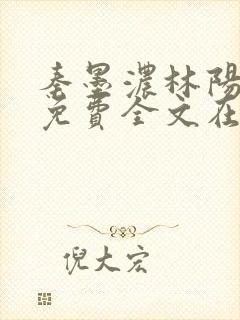 秦墨濃林陽
免費全文在
倪大宏